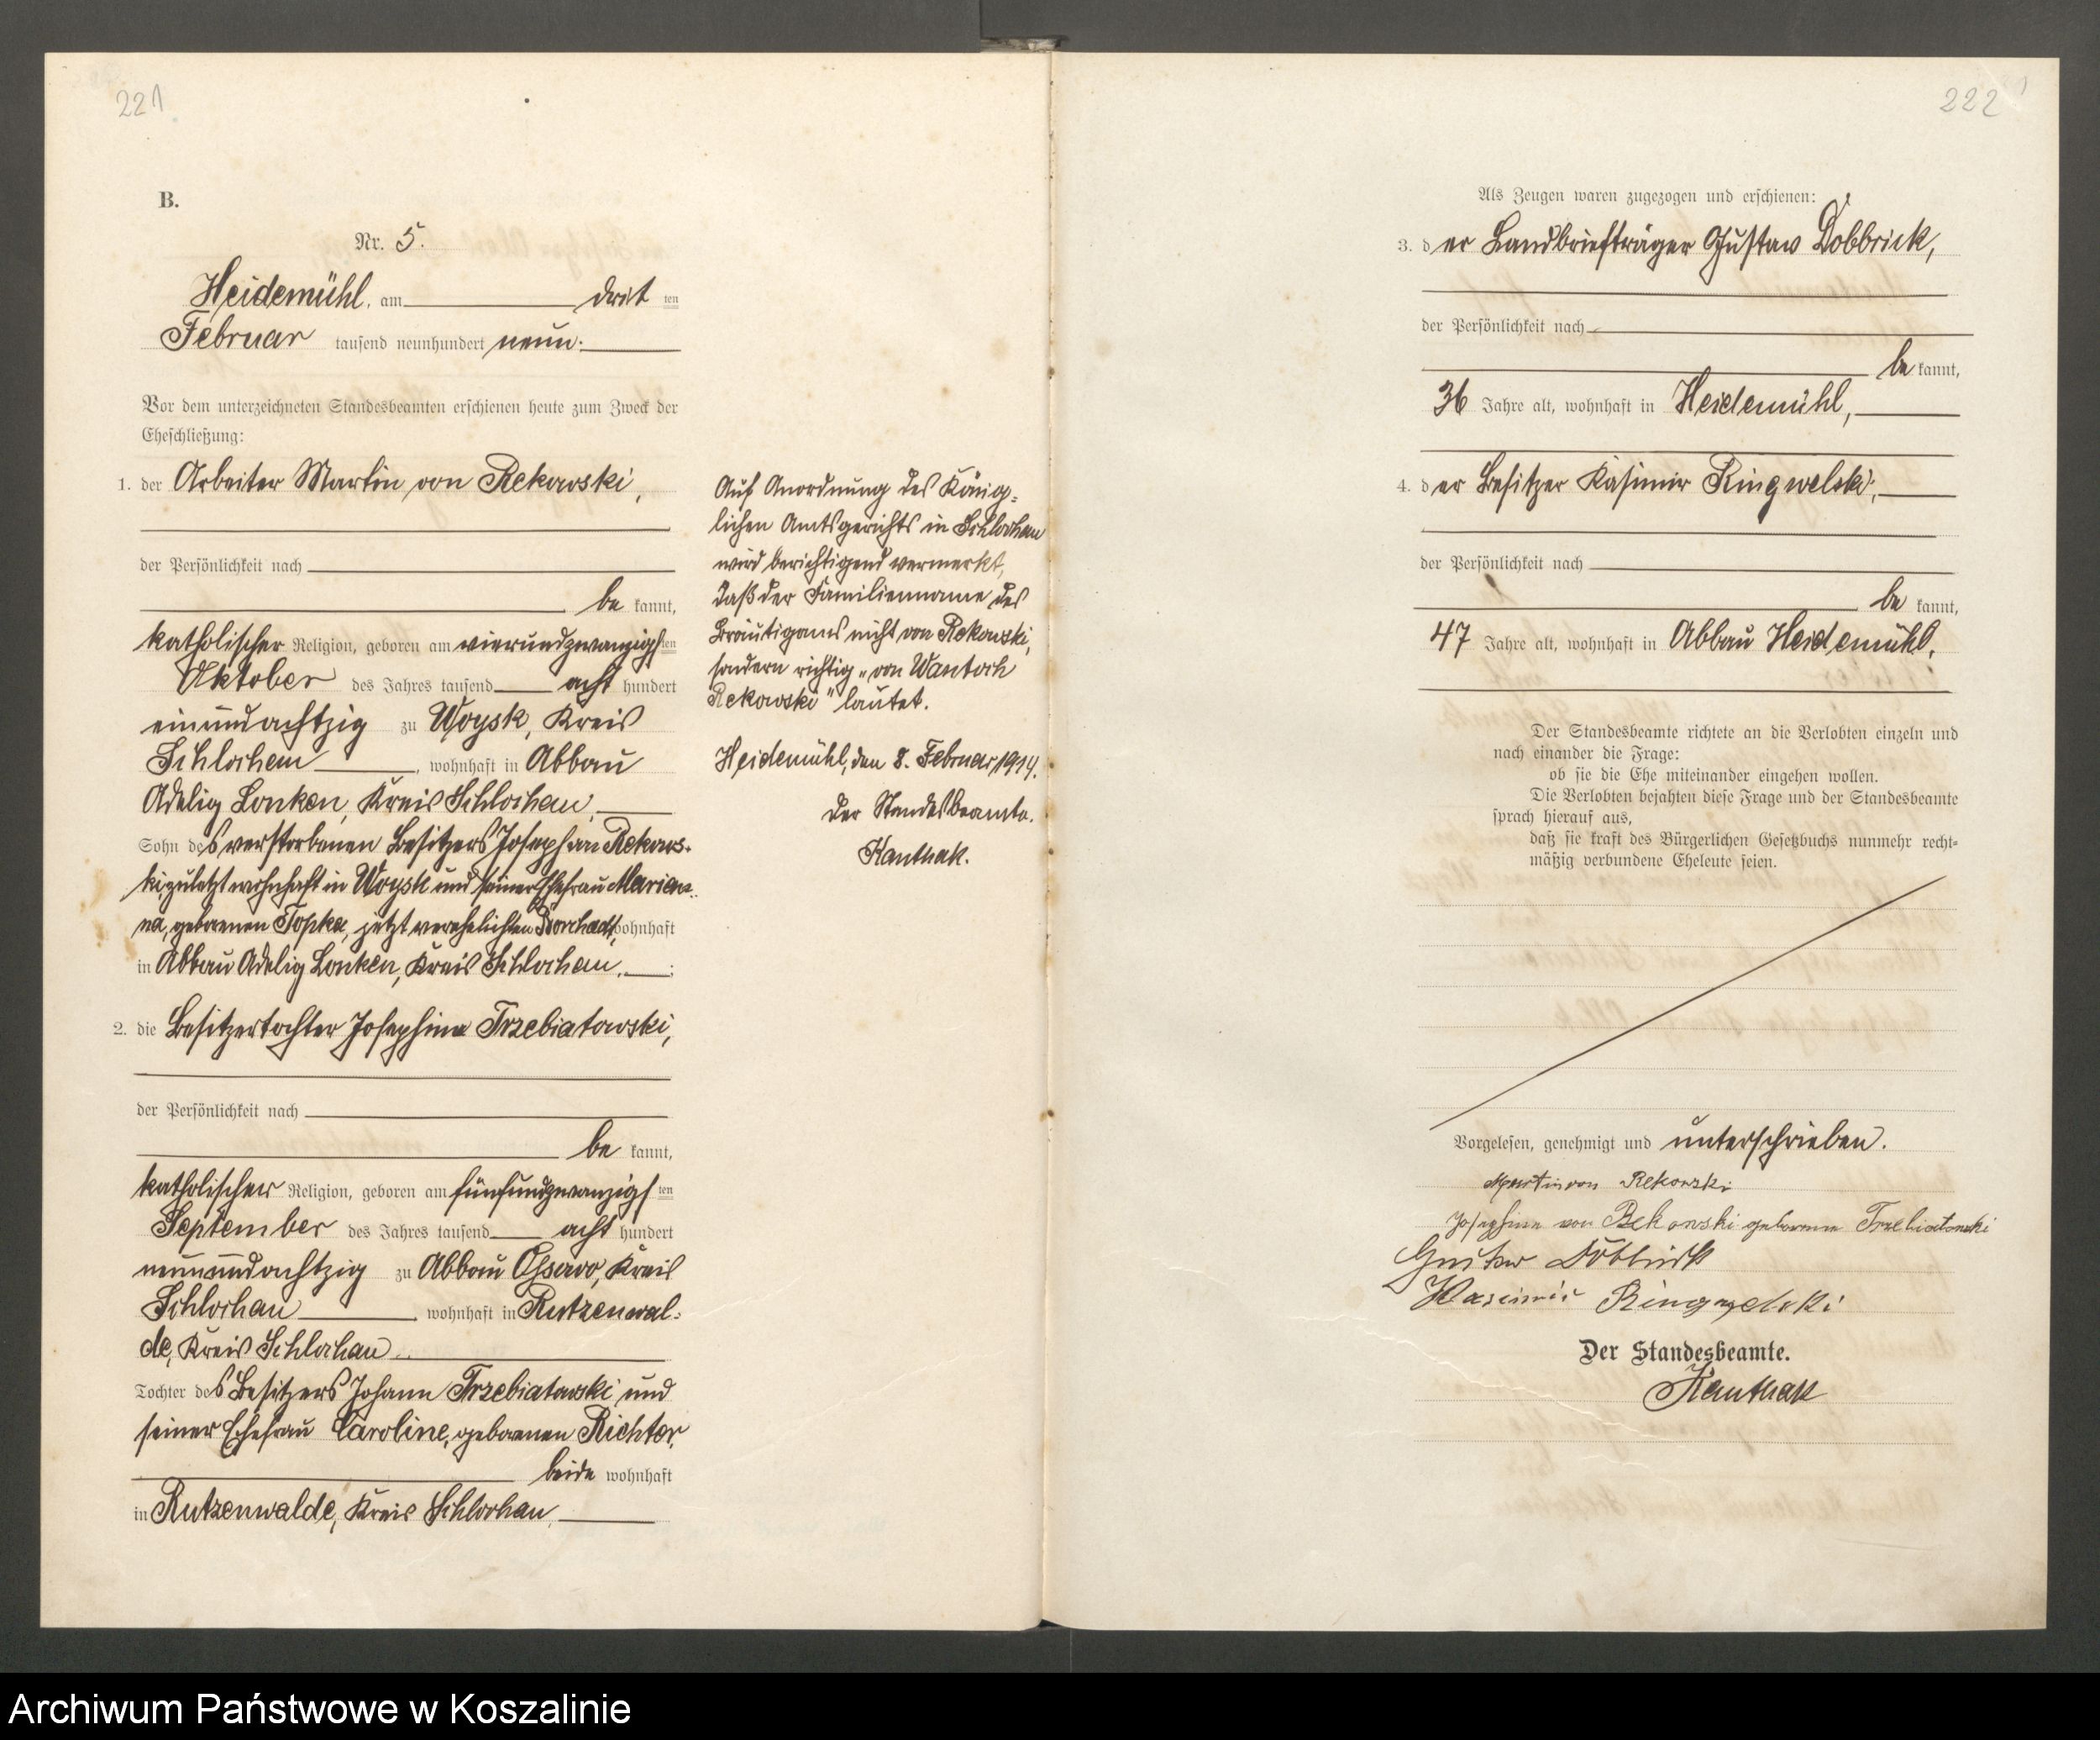 221
B.
Nr. 5.
Heidemühl, am dritten
Februar tausend neunhundert neun.
Vor dem unterzeichneten Standesbeamten erschienen heute zum Zweck der
Eheschließung:
1. der Arbeiter Martin von Rekowski,
der Persönlichkeit nach
be kannt,
katholischer Religion, geboren am vierundzwanzigsten
Oktober des Jahres tausend acht hundert
einundachtzig zu Woysk, Kreis
Schlochau, wohnhaft in Abbau
Adelig Lonken, Kreis Schlochau,
Sohn des verstorbenen Besitzers Joseph von Rekows-
ki zuletzt wohnhaft in Woysk und seiner Ehefrau Marian-
na, geborenen Topka, jetzt verehelichten Borchadt, wohnhaft
in Abbau Adelig Lonken, Kreis Schlochau.;
2. die Besitzertochter Josephine Trzebiatowski,
der Persönlichkeit nach
be kannt,
katholischer Religion, geboren am fünfundzwanzigsten
September des Jahres tausend acht hundert
neunundachtzig zu Abbau Ossowo, Kreis
Schlochau, wohnhaft in Rutzenwal-
de, Kreis Schlochau
Tochter des Besitzers Johann Trzebiatowski und
seiner Ehefrau Caroline, geborenen Richter,
beide wohnhaft
in Rutzenwalde, Kreis Schlochau,
Auf Anordnung des König-
lichen Amtsgerichts in Schlochau
wird berichtigend vermerkt,
daß der Familienname des
Bräutigams nicht von Rekowski,
sondern richtig „von Wantoch
Rekowski" lautet.
Heidemühl, den 8. Februar 1914.
Der Standesbeamte.
Kanthak.
222
Als Zeugen waren zugezogen und erschienen:
3. der Landbriefträger Gustav Dobbrick,
der Persönlichkeit nach
be kannt,
36 Jahre alt, wohnhaft in Heidemühl,
4. der Besitzer Kasimir Ringwelski,
der Persönlichkeit nach
be kannt,
47 Jahre alt, wohnhaft in Abbau Heidemühl.
Der Standesbeamte richtete an die Verlobten einzeln und
nach einander die Frage:
ob sie die Ehe miteinander eingehen wollen.
Die Verlobten bejahten diese Frage und der Standesbeamte
sprach hierauf aus,
daß sie kraft des Bürgerlichen Gesetzbuchs nunmehr recht-
mäßig verbundene Eheleute seien.
Vorgelesen, genehmigt und unterschrieben.
Martin von Rekowski
Josephine von Rekowski geborene Trzebiatowski
Gustav Dobbrick
Kasimir Ringwelski
Der Standesbeamte.
Kanthak
Archiwum Państwowe w Koszalinie